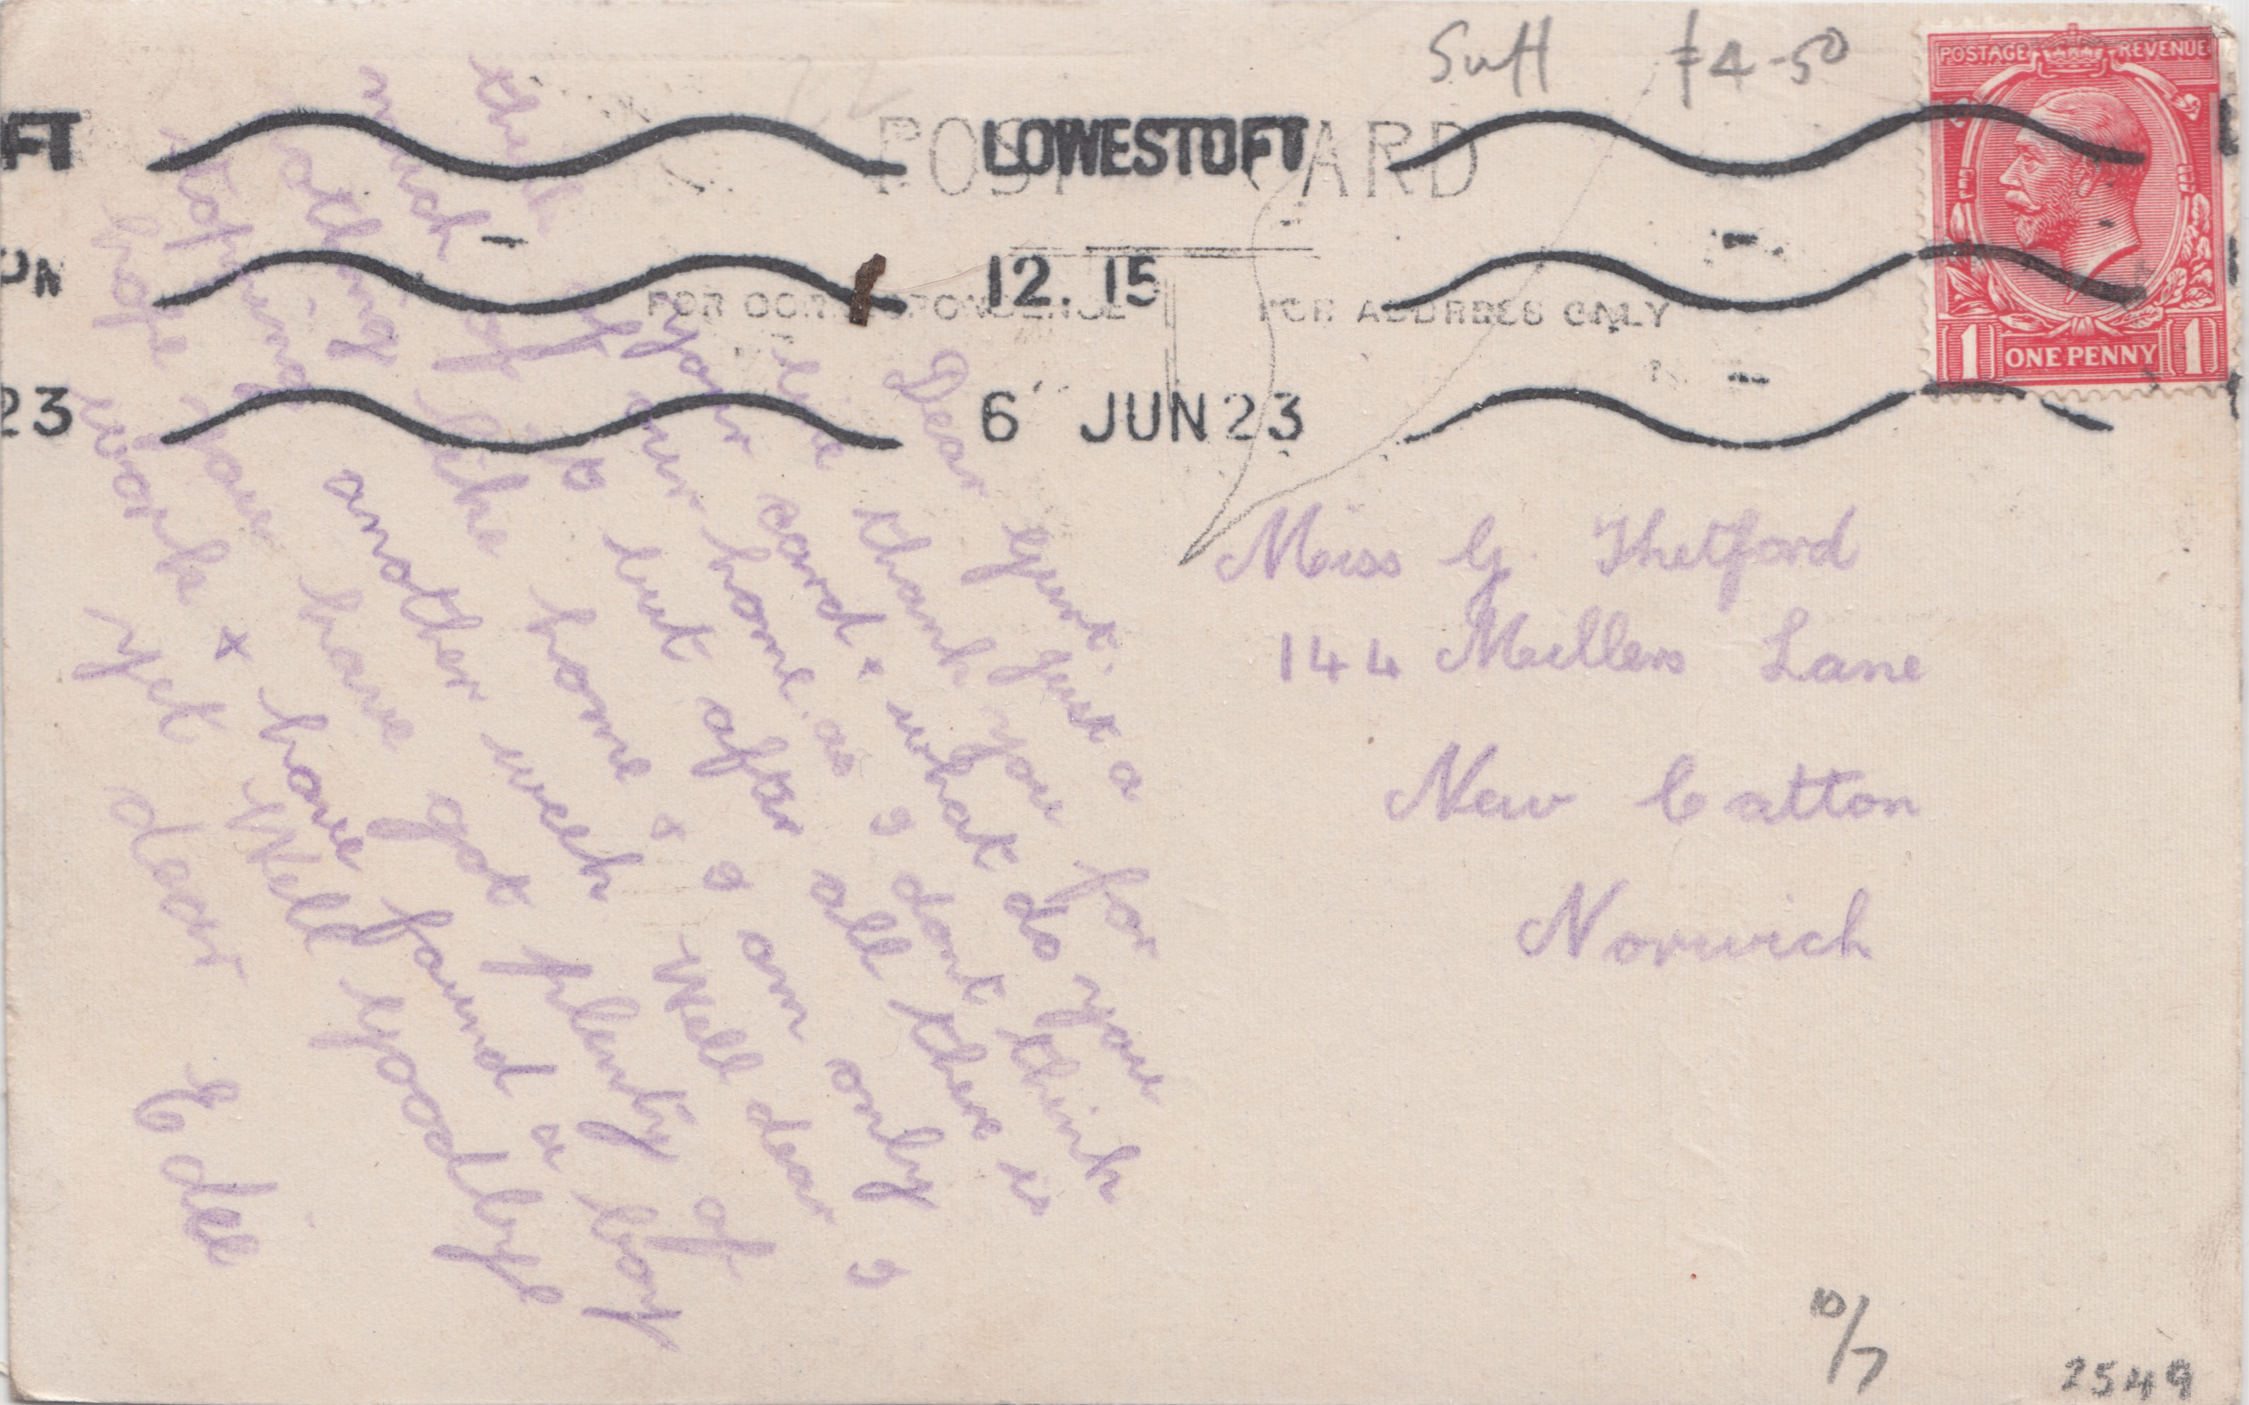 Suff £4-50
POSTAGE REVENUE
POST CARD
FT LOWESTOFT
PM 12.15
23 6 JUN 23
FOR CORRESPONDENCE FOR ADDRESS ONLY
1 ONE PENNY 1
Dear Gurt. just a
line thank you for
your card & what do you
think of our home. as I dont think
much of it but after all there is
nothing like home & I am only
stopping another week Well dear I
hope you have got plenty of
work & have found a boy
yet Well Goodbye
dear Edie
Miss G. Thetford
144 Millers Lane
New Catton
Norwich
10/7
2549